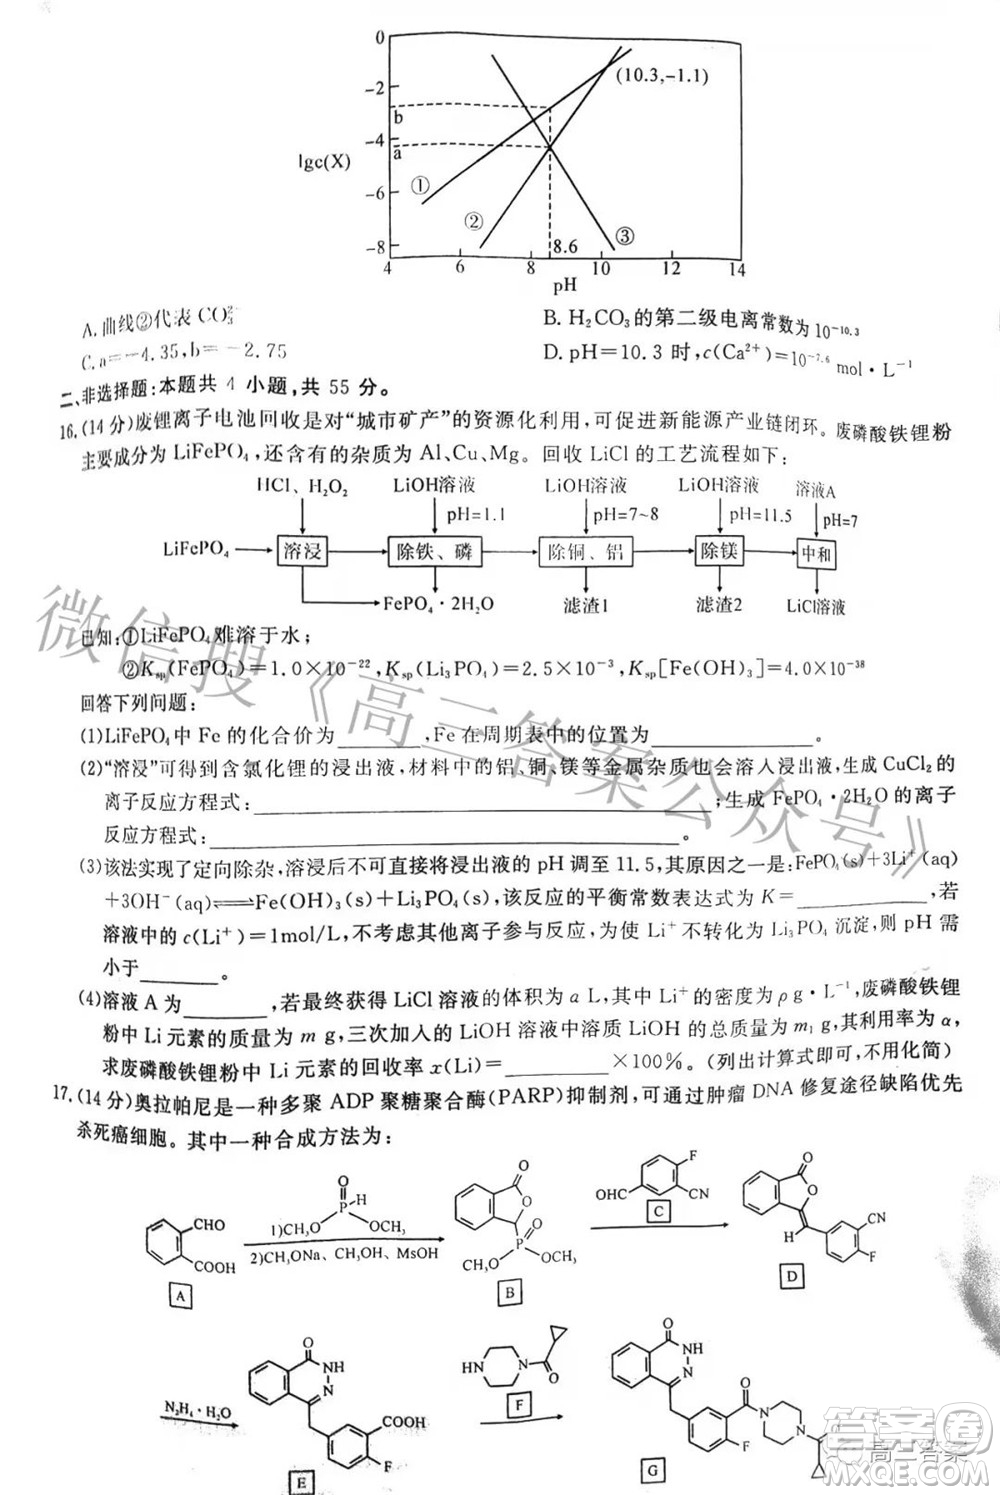 0
-2
b
-4
a
lgc(X)
-6
-8
①
②
③
(10.3,-1.1)
8.6
4 6 8 10 12 14
pH
A.曲线②代表 CO₃²⁻ B. H₂CO₃的第二级电离常数为 10⁻¹⁰·³
C.a=-4.35,b=-2.75 D. pH=10.3 时,c(Ca²⁺)=10⁻⁷·⁶ mol·L⁻¹
二、非选择题:本题共 4 小题,共 55 分。
16.(14分)废锂离子电池回收是对“城市矿产”的资源化利用,可促进新能源产业链闭环。废磷酸铁锂粉
主要成分为 LiFePO₄,还含有的杂质为 Al、Cu、Mg。回收 LiCl 的工艺流程如下:
HCl、H₂O₂ LiOH溶液 LiOH溶液 LiOH溶液 溶液A
pH=1.1 pH=7~8 pH=11.5 pH=7
LiFePO₄ 溶浸 除铁、磷 除铜、铝 除镁 中和
FePO₄·2H₂O 滤渣1 滤渣2 LiCl溶液
已知:①LiFePO₄难溶于水;
②Ksp(FePO₄)=1.0×10⁻²²,Ksp(Li₃PO₄)=2.5×10⁻³,Ksp[Fe(OH)₃]=4.0×10⁻³⁸
回答下列问题:
(1)LiFePO₄中 Fe 的化合价为______,Fe 在周期表中的位置为______。
(2)“溶浸”可得到含氯化锂的浸出液,材料中的铝、铜、镁等金属杂质也会溶入浸出液,生成 CuCl₂的
离子反应方程式:______;生成 FePO₄·2H₂O 的离子
反应方程式:______。
(3)该法实现了定向除杂,溶浸后不可直接将浸出液的 pH 调至 11.5,其原因之一是:FePO₄(s)+3Li⁺(aq)
+3OH⁻(aq)⇌Fe(OH)₃(s)+Li₃PO₄(s),该反应的平衡常数表达式为 K=______,若
溶液中的 c(Li⁺)=1mol/L,不考虑其他离子参与反应,为使 Li⁺不转化为 Li₃PO₄ 沉淀,则 pH 需
小于______。
(4)溶液 A 为______,若最终获得 LiCl 溶液的体积为 a L,其中 Li⁺的密度为 ρ g·L⁻¹,废磷酸铁锂
粉中 Li 元素的质量为 m g,三次加入的 LiOH 溶液中溶质 LiOH 的总质量为 m₁ g,其利用率为 α,
求废磷酸铁锂粉中 Li 元素的回收率 x(Li)=______×100%。(列出计算式即可,不用化简)
17.(14分)奥拉帕尼是一种多聚 ADP 聚糖聚合酶(PARP)抑制剂,可通过肿瘤 DNA 修复途径缺陷优先
杀死癌细胞。其中一种合成方法为:
CHO
COOH
A
O
P
H
1)CH₃O
O
CH₃
2)CH₃ONa、CH₃OH、MsOH
O
O
P
O
CH₃O
OCH₃
B
F
OHC
CN
C
O
O
H
CN
F
D
N₂H₄·H₂O
O
NH
N
COOH
F
E
HN
N
O
F
O
NH
N
O
N
N
F
G
微信搜《高三答案公众号》
答案圈
MXQE.COM
高三答案